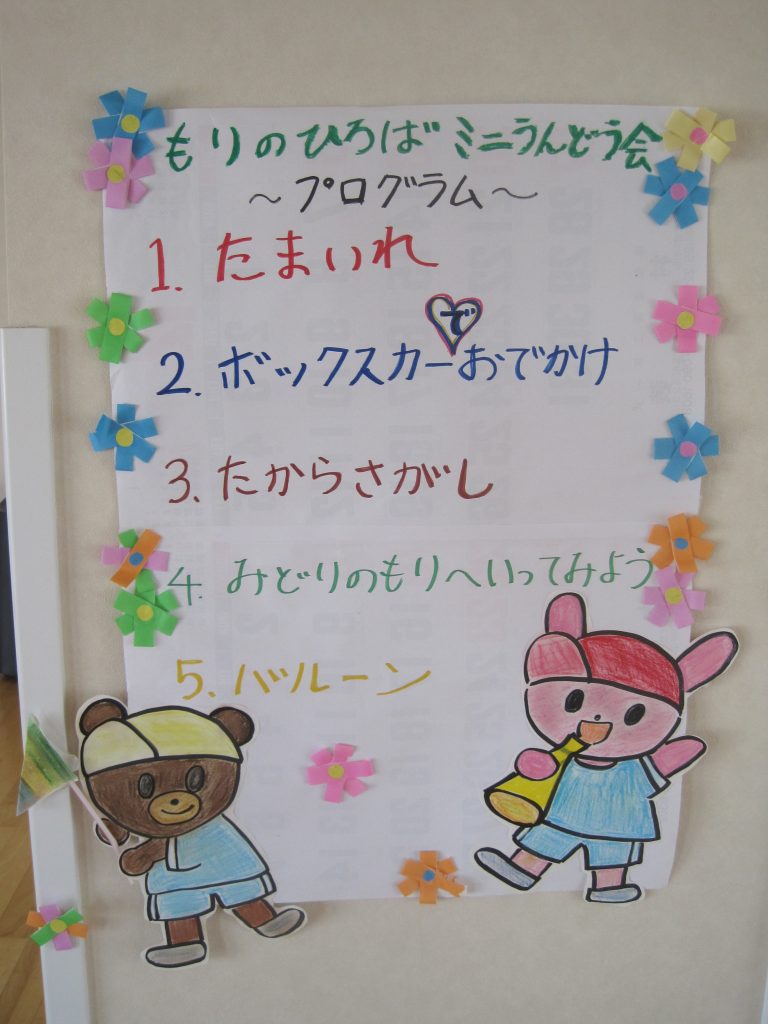 もりのひろば ミニうんどう会
～プログラム～
1. たまいれ
2. ボックスカーでおでかけ
3. たからさがし
4. みどりのもりへいってみよう
5. バルーン